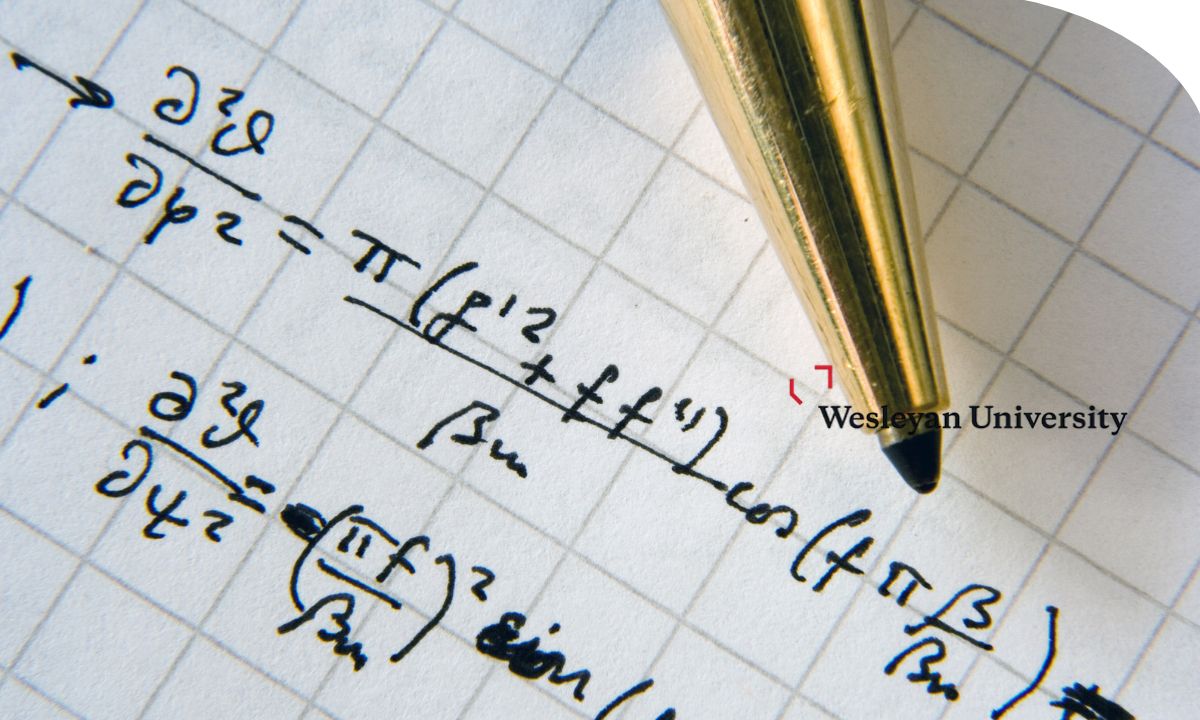 → ∂²ϑ/∂φ² = π(f'² + f f'')/βm cos(f π β/βm)
) ; ∂²ϑ/∂ψ² = (πf/βm)² sin (
Wesleyan University